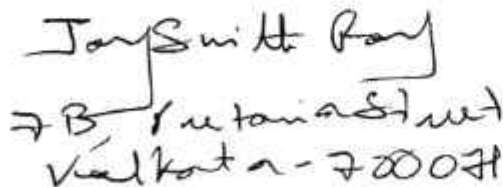 Joy Smith Roy
7B Pretoria Street
Kolkata - 700071